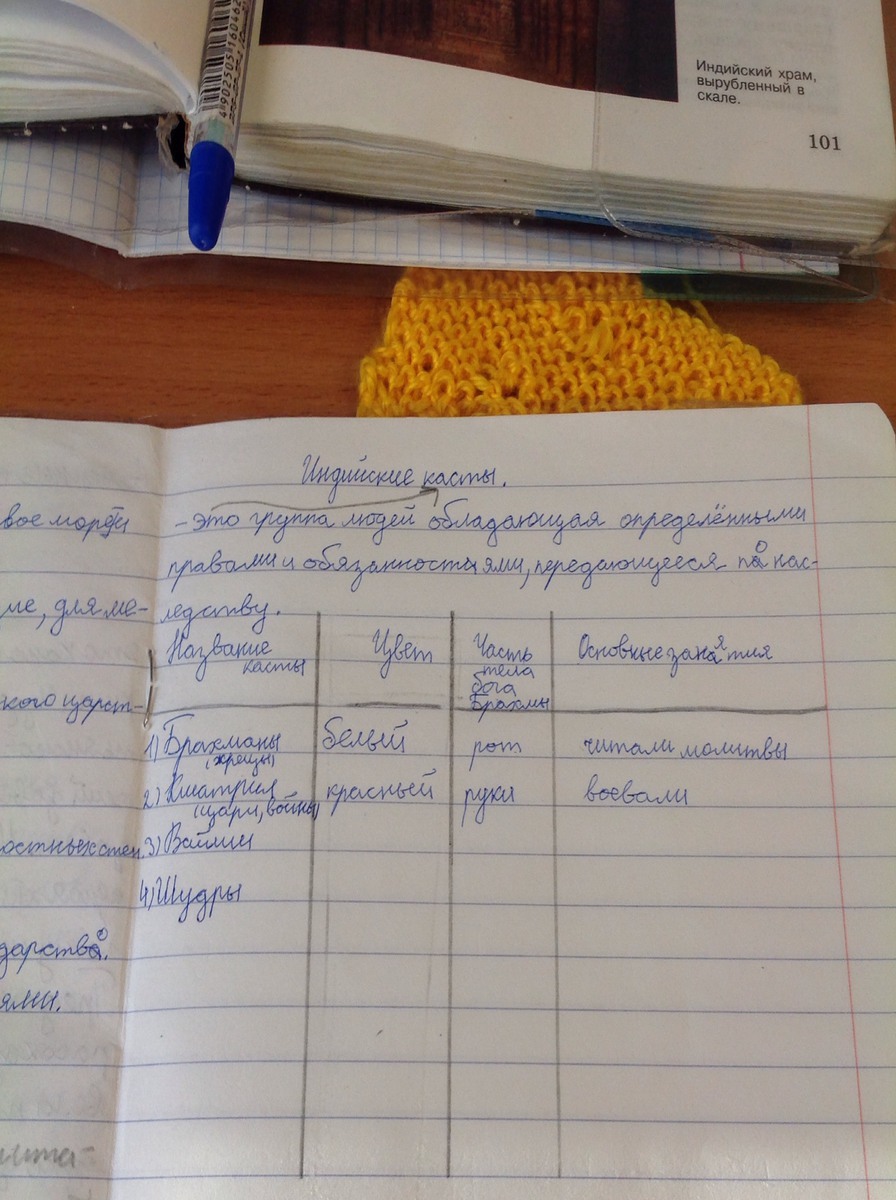 Индийский храм,
вырубленный в
скале.
101
Индийские касты.
- это группа людей обладающая определёнными
правами и обязанностями, передающееся по нас-
ледству.
Название касты | Цвет | Часть тела бога Брахмы | Основные занятия
1) Брахманы (жрецы) | белый | рот | читали молитвы
2) Кшатрии (цари, войны) | красный | руки | воевали
3) Вайшии
4) Шудры
ие, для ме-
кого царст-
дарство.
ями.